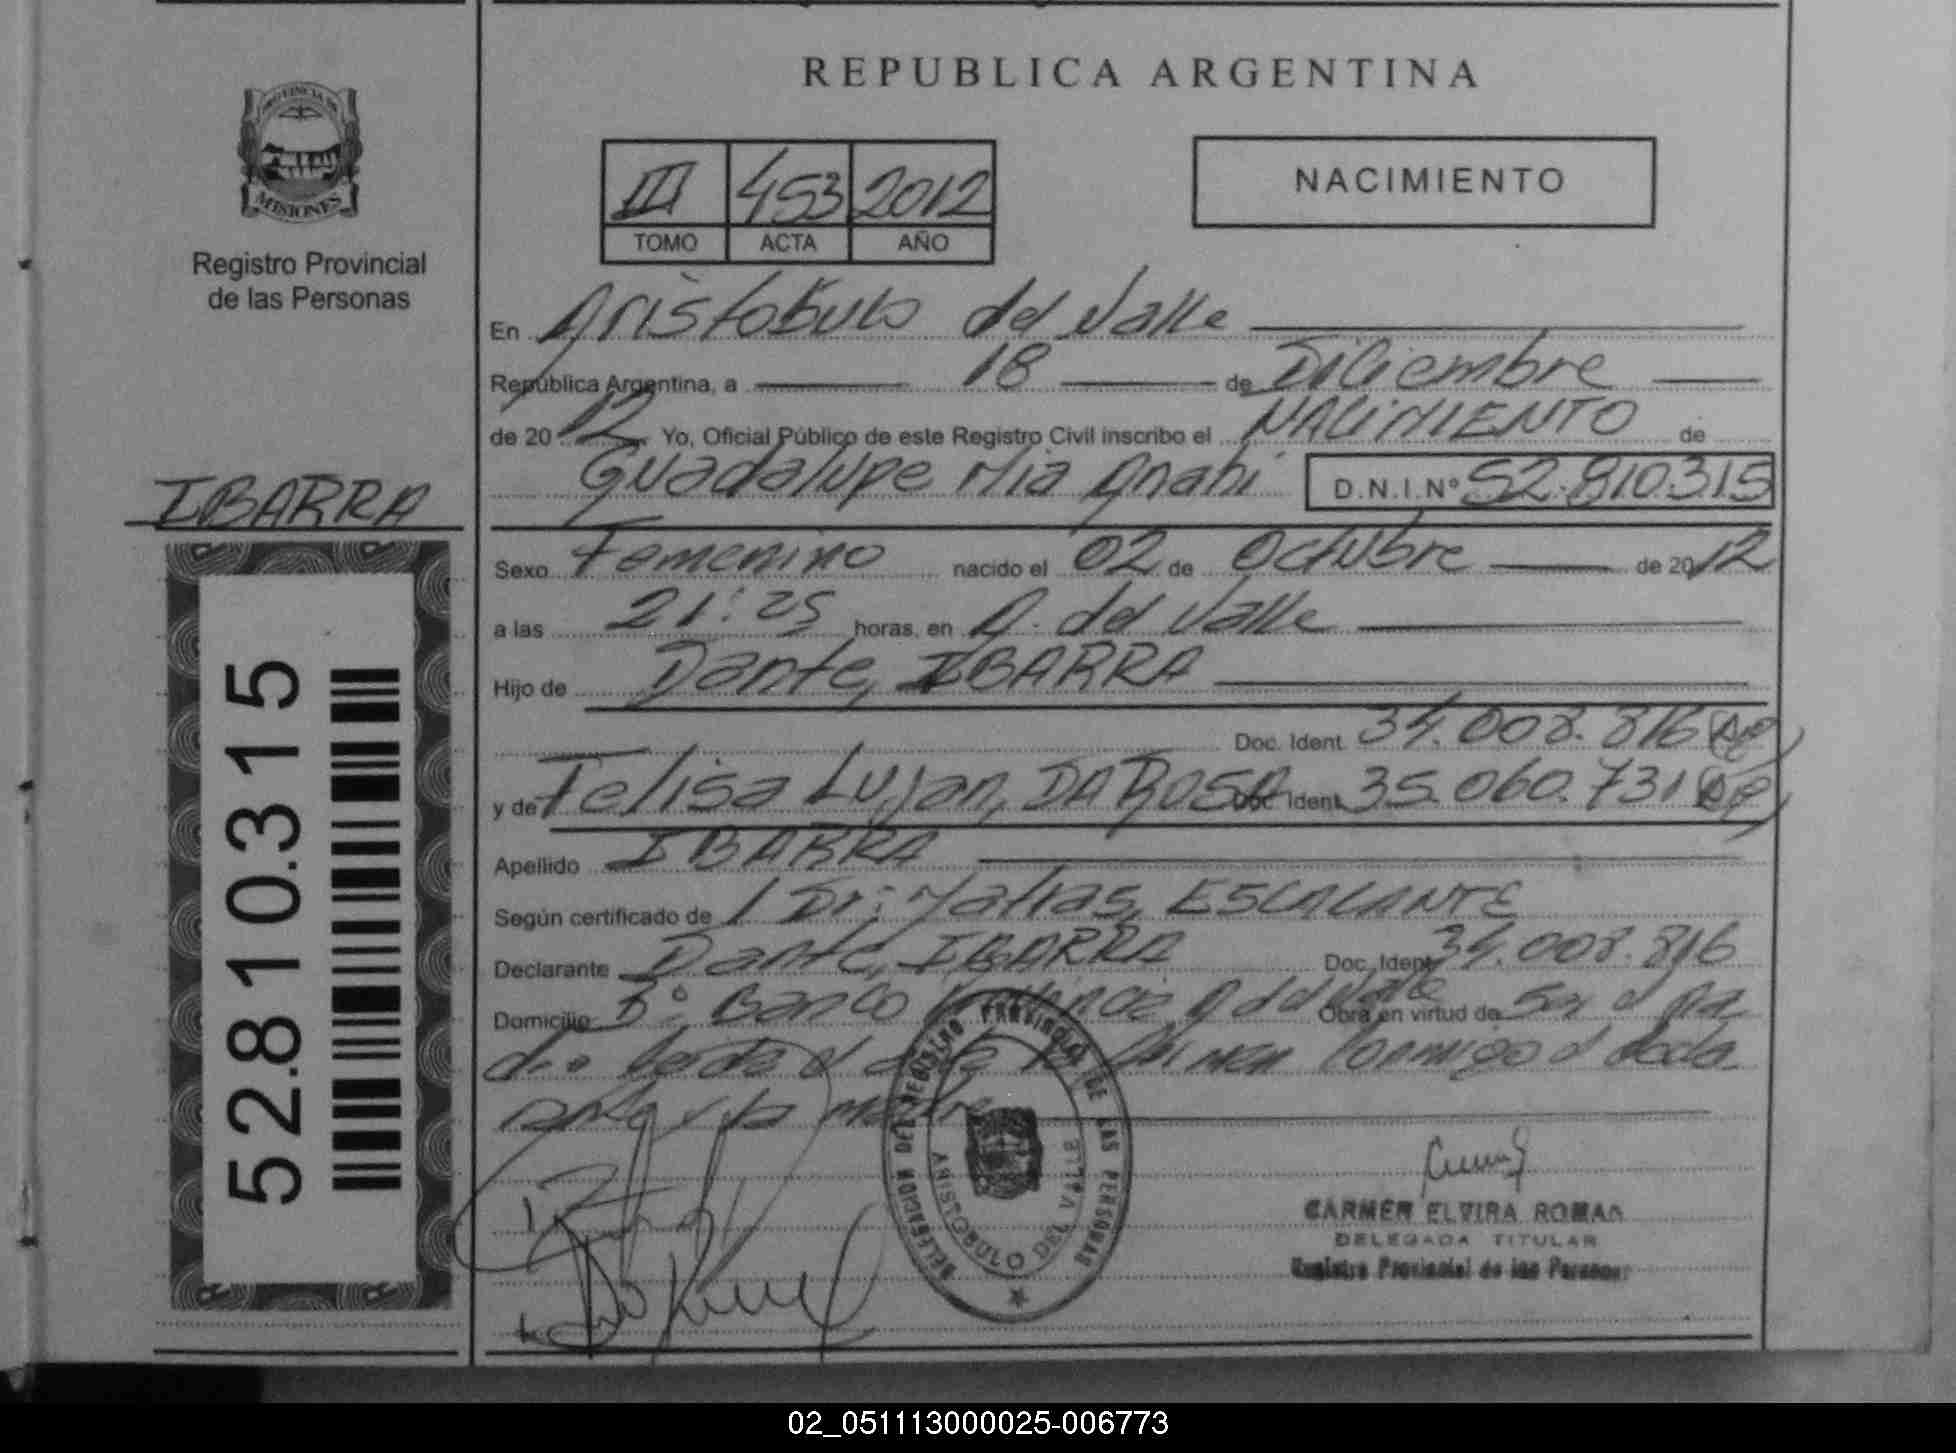 PROVINCIA DE
MISIONES
Registro Provincial
de las Personas
IBARRA
52.810.315
REPUBLICA ARGENTINA
III 453 2012
TOMO ACTA AÑO
NACIMIENTO
En Aristobulo del Valle
República Argentina, a 18 de Diciembre
de 2012 Yo, Oficial Público de este Registro Civil inscribo el NACIMIENTO de
Guadalupe Mia Anahi D.N.I.Nº 52.810.315
Sexo Femenino nacido el 02 de Octubre de 2012
a las 21:25 horas, en A. del Valle
Hijo de Dante, IBARRA
Doc. Ident. 34.008.816
y de Felisa Lujan, DA ROSA Doc. Ident. 35.060.731
Apellido IBARRA
Según certificado de Dr: Matias, ESCALANTE
Declarante Dante, IBARRA Doc. Ident. 34.008.816
Domicilio Bº Banco Provincia A del Valle Obra en virtud de Ser el Pa
dre el acta la firman conmigo el decla
rante y la madre
DELEGACION DEL REGISTRO PROVINCIAL DE LAS PERSONAS
ARISTOBULO DEL VALLE
CARMEN ELVIRA ROMAN
DELEGADA TITULAR
Registro Provincial de las Personas
02_051113000025-006773